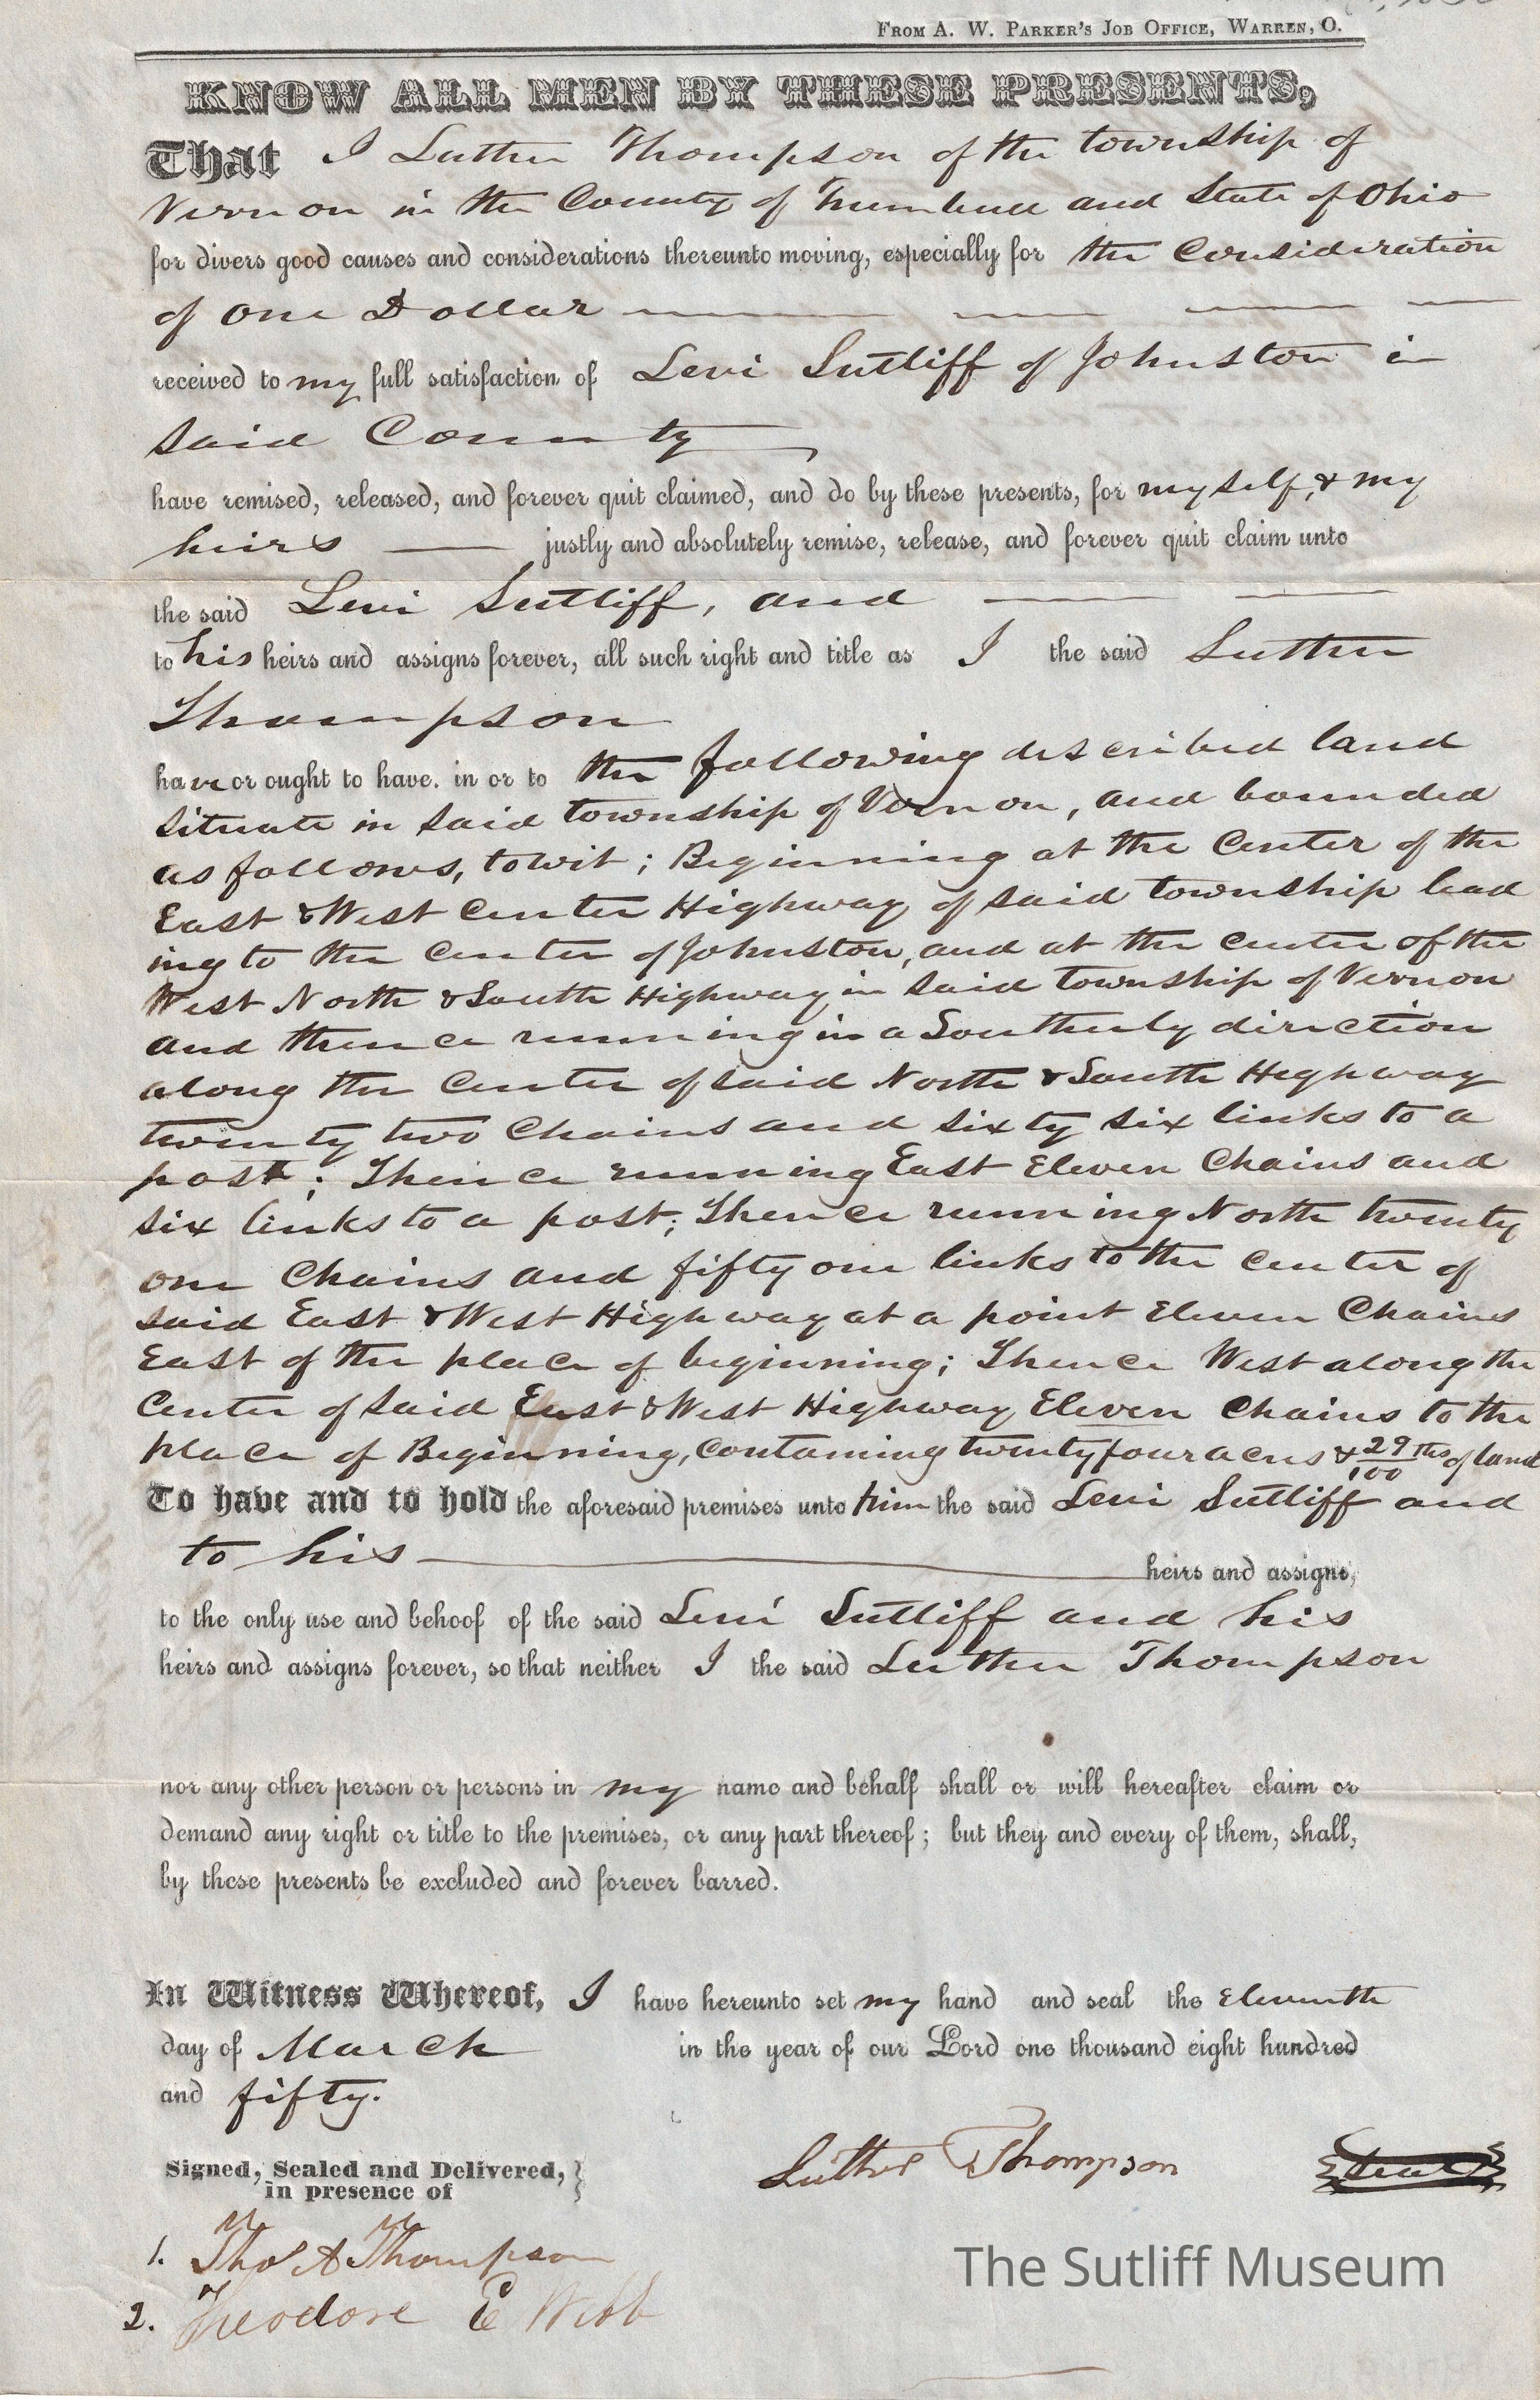 FROM A. W. PARKER'S JOB OFFICE, WARREN, O.
KNOW ALL MEN BY THESE PRESENTS,
That I Luther Thompson of the township of
Vernon in the County of Trumbull and State of Ohio
for divers good causes and considerations thereunto moving, especially for the Consideration
of One Dollar
received to my full satisfaction of Levi Sutliff of Johnston in
said County
have remised, released, and forever quit claimed, and do by these presents, for myself & my
heirs justly and absolutely remise, release, and forever quit claim unto
the said Levi Sutliff, and
to his heirs and assigns forever, all such right and title as I the said Luther
Thompson
have or ought to have. in or to the following described land
situate in said township of Vernon, and bounded
as follows, towit; Beginning at the Center of the
East & West Center Highway of said township lead
ing to the Center of Johnston, and at the Center of the
West North & South Highway in said township of Vernon
and thence running in a Southerly direction
along the Center of said North & South Highway
twenty two Chains and sixty six links to a
post; Thence running East Eleven Chains and
six links to a post; Thence running North twenty
one Chains and fifty one links to the Center of
said East & West Highway at a point Eleven Chains
East of the place of beginning; Thence West along the
Center of said East & West Highway Eleven Chains to the
place of Beginning, Containing twenty four acres & 29/100 ths of land
To have and to hold the aforesaid premises unto him the said Levi Sutliff and
to his heirs and assigns,
to the only use and behoof of the said Levi Sutliff and his
heirs and assigns forever, so that neither I the said Luther Thompson
nor any other person or persons in my name and behalf shall or will hereafter claim or
demand any right or title to the premises, or any part thereof; but they and every of them, shall,
by these presents be excluded and forever barred.
In Witness Whereof, I have hereunto set my hand and seal the Eleventh
day of March in the year of our Lord one thousand eight hundred
and fifty.
Signed, Sealed and Delivered,
in presence of
Luther Thompson Seal
1. Thos A Thompson
2. Theodore E Webb
The Sutliff Museum